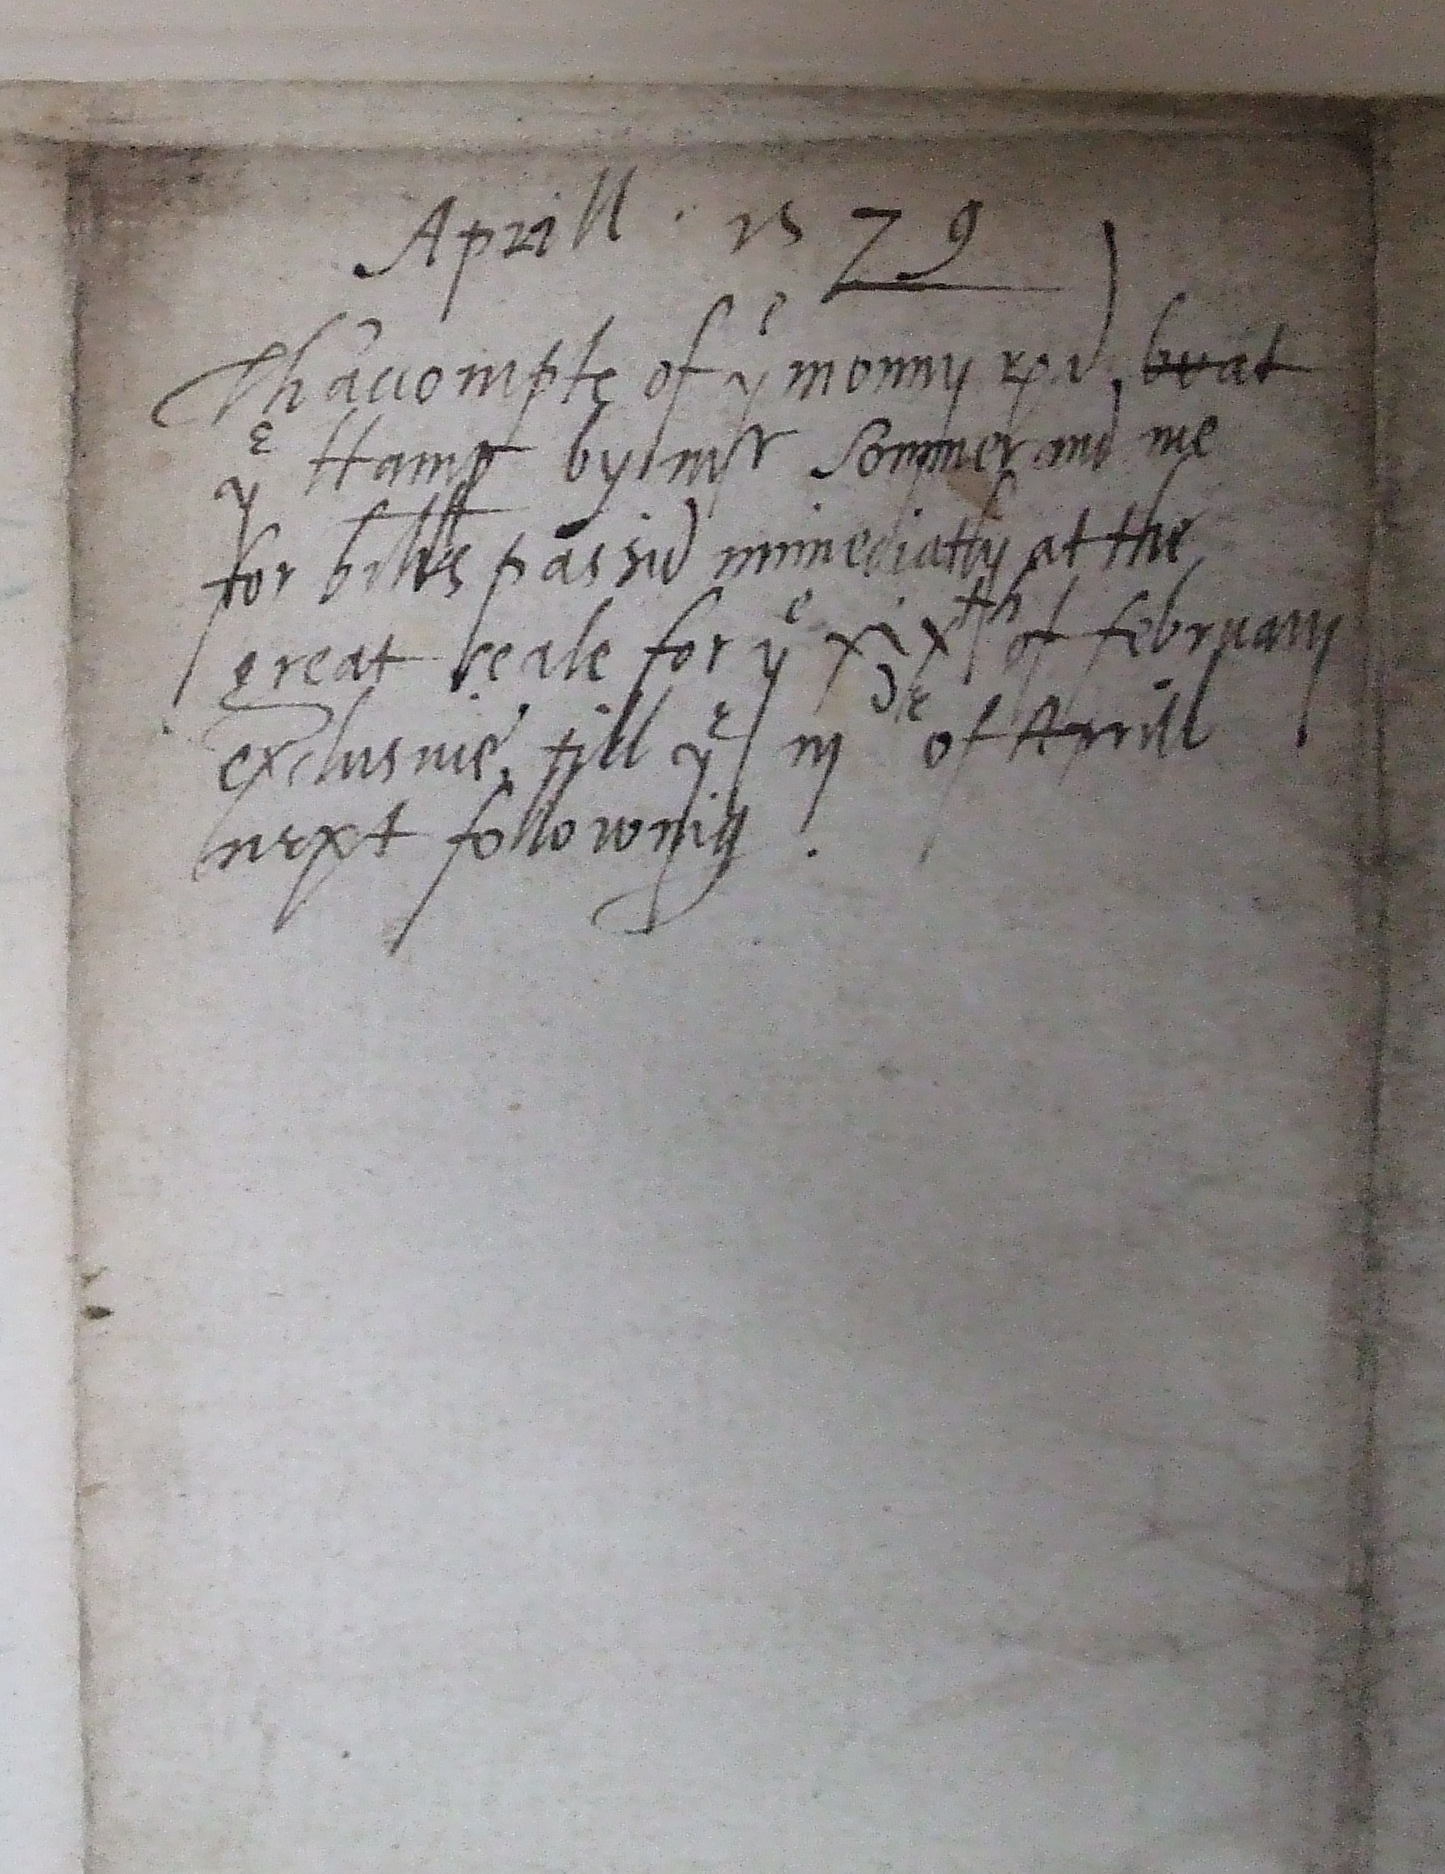 Aprill . 1579
Thaccompte of yᵉ monny rec̃d, ~~bo~~at
yᵉ Hamp by mʳ Sommer and me
for billes passid immediatly at the
great seale for yᵉ xixᵗʰ of february
exclusiue, till yᵉ iijᵈᵉ of Aprill
next following .